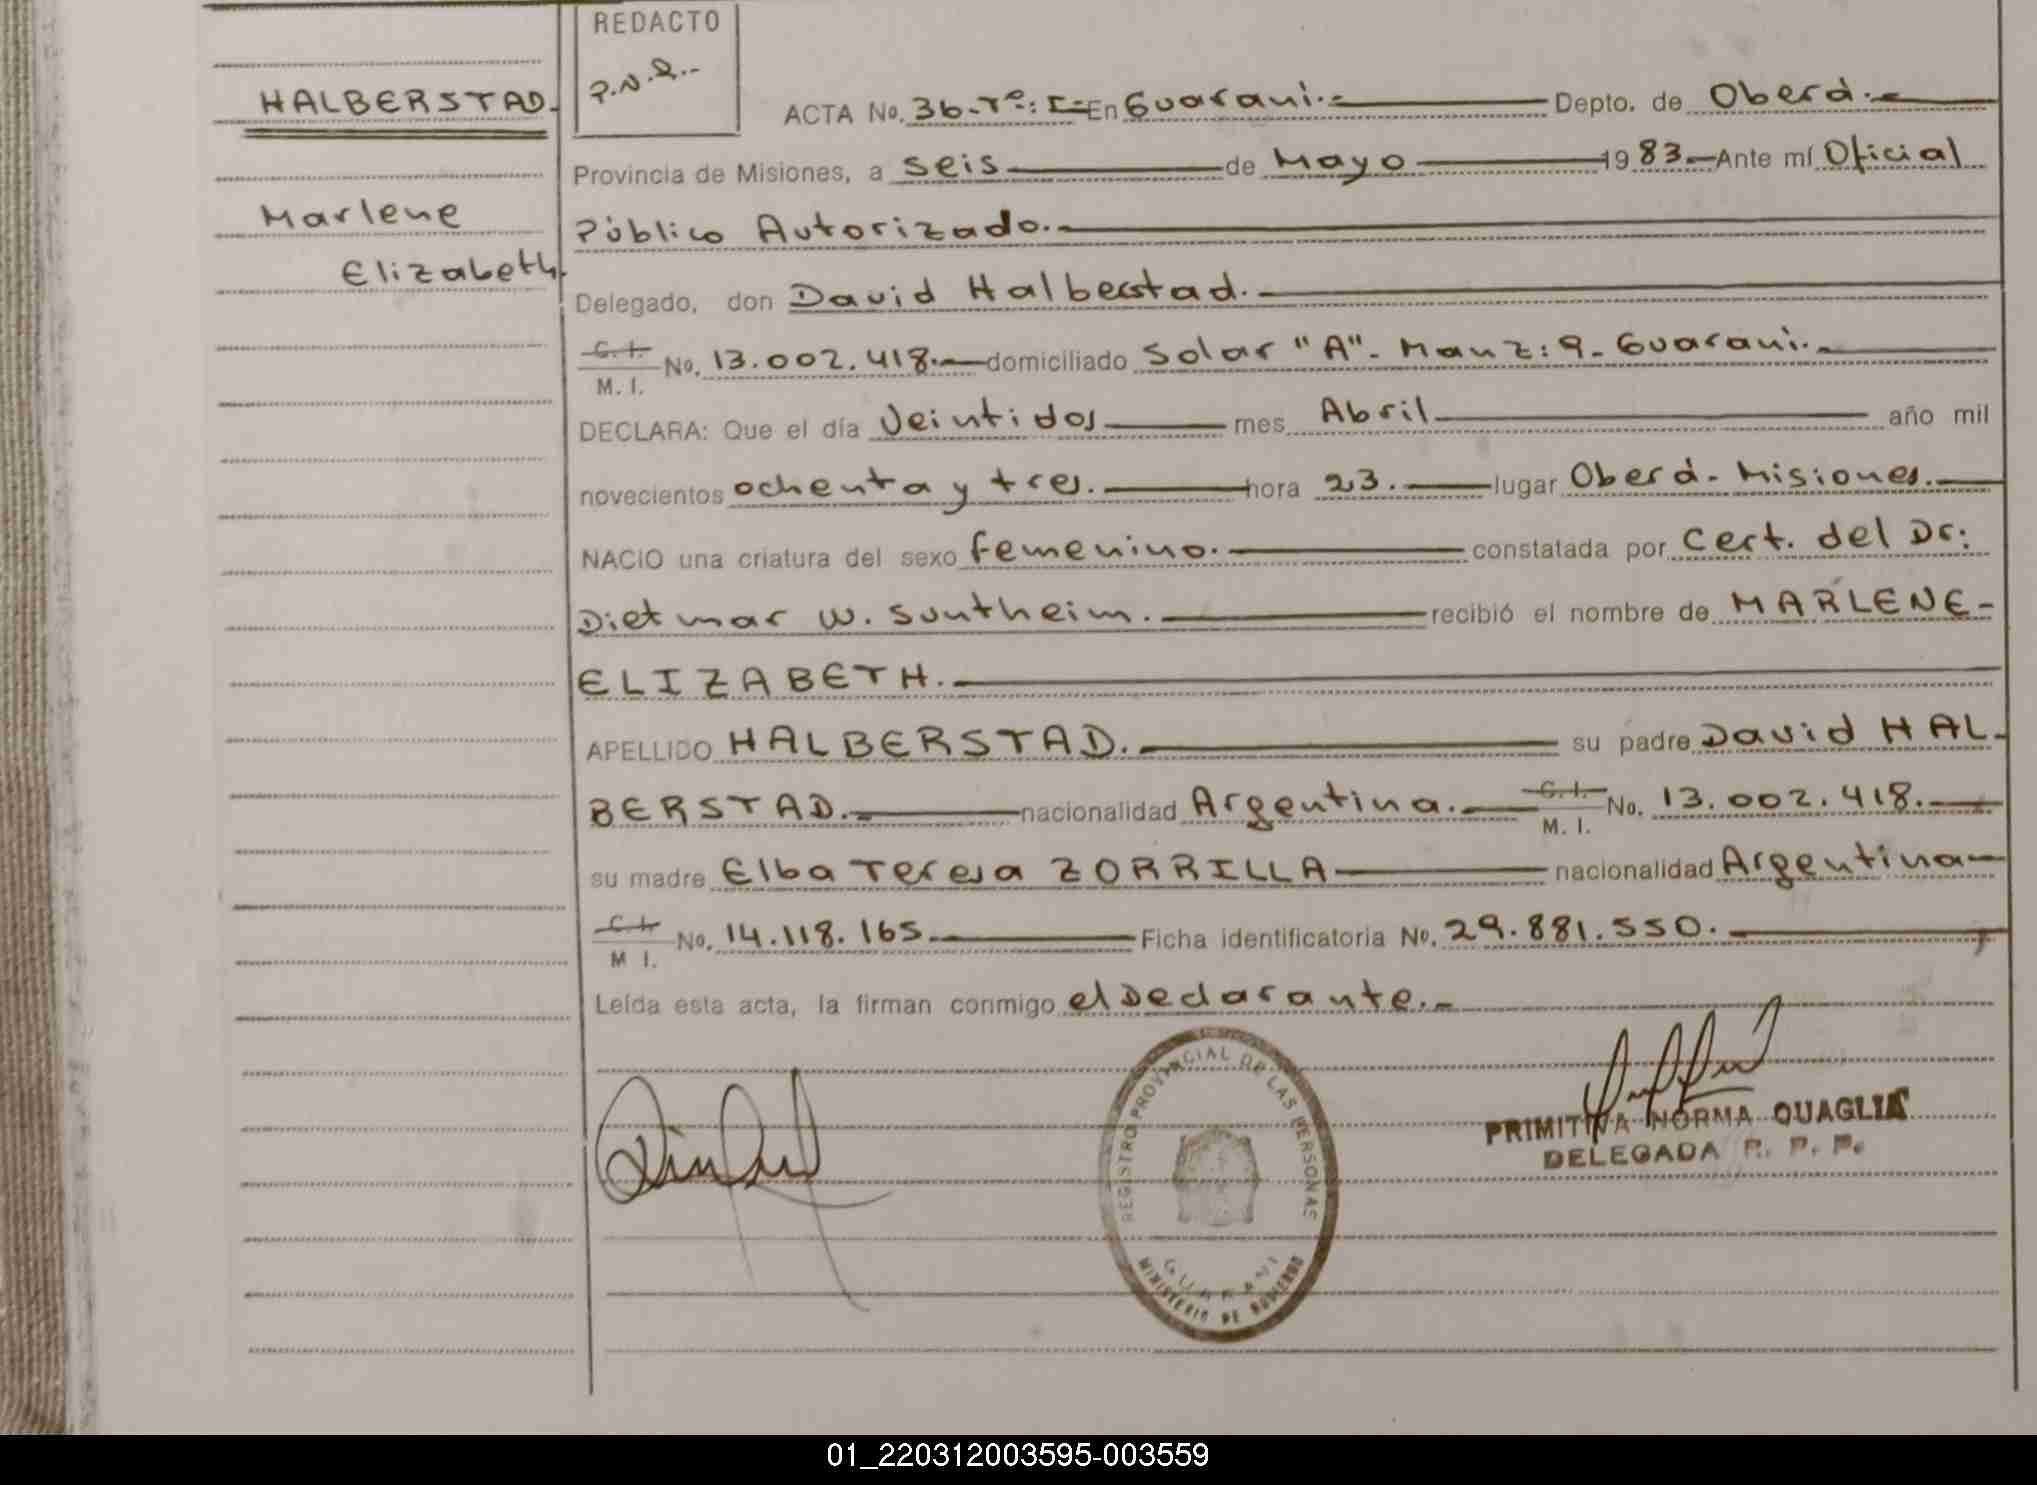 REDACTO
P.N.Q.-
HALBERSTAD.
Marlene
Elizabeth.
ACTA No. 36-Tº: I- En Guarani.- Depto. de Oberá.-
Provincia de Misiones, a seis de Mayo 1983.- Ante mí Oficial
Público Autorizado.-
Delegado, don David Halberstad.-
C. I. M. I. No. 13.002.418.- domiciliado Solar "A"- Manz: 9- Guarani.-
DECLARA: Que el día Veintidos mes Abril año mil
novecientos ochenta y tres.- hora 23.- lugar Oberá- Misiones.-
NACIO una criatura del sexo femenino.- constatada por Cert. del Dr:
Dietmar W. Suntheim.- recibió el nombre de MARLENE-
ELIZABETH.-
APELLIDO HALBERSTAD.- su padre David HAL-
BERSTAD.- nacionalidad Argentina.- C. I. M. I. No. 13.002.418.-
su madre Elba Teresa ZORRILLA nacionalidad Argentina-
C. I. M I. No. 14.118.165 Ficha identificatoria No. 29.881.550.-
Leída esta acta, la firman conmigo el Declarante.-
REGISTRO PROVINCIAL DE LAS PERSONAS
GUARANI
MINISTERIO DE GOBIERNO
PRIMITIVA NORMA QUAGLIA
DELEGADA R. P. P.
01_220312003595-003559